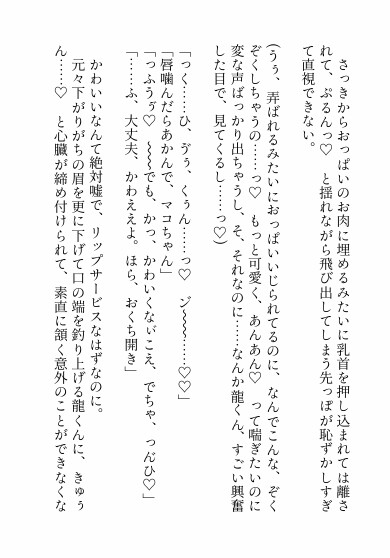 さっきからおっぱいのお肉に埋めるみたいに乳首を押し込まれては離さ
れて、ぷるんっ♡　と揺れながら飛び出してしまう先っぽが恥ずかしすぎ
て直視できない。
(うぅ、弄ばれるみたいにおっぱいいじられてるのに、なんでこんな、ぞく
ぞくしちゃうの……っ♡　もっと可愛く、あんあん♡　って喘ぎたいのに
変な声ばっかり出ちゃうし、そ、それなのに……なんか龍くん、すごい興奮
した目で、見てくるし……っ♡)
「っく……ひ、ゔぅ、くぅん……っ♡　ン゛〜〜……♡♡」
「唇噛んだらあかんで、マコちゃん」
「っふうゔ♡　〜〜でも、かっ、かわいくなぃこえ、でちゃ、っんひ♡」
「……ふ、大丈夫、かわええよ。ほら、おくち開き」
かわいいなんて絶対嘘で、リップサービスなはずなのに。
元々下がりがちの眉を更に下げて口の端を釣り上げる龍くんに、きゅぅ
ん……♡　と心臓が締め付けられて、素直に頷く意外のことができなくな